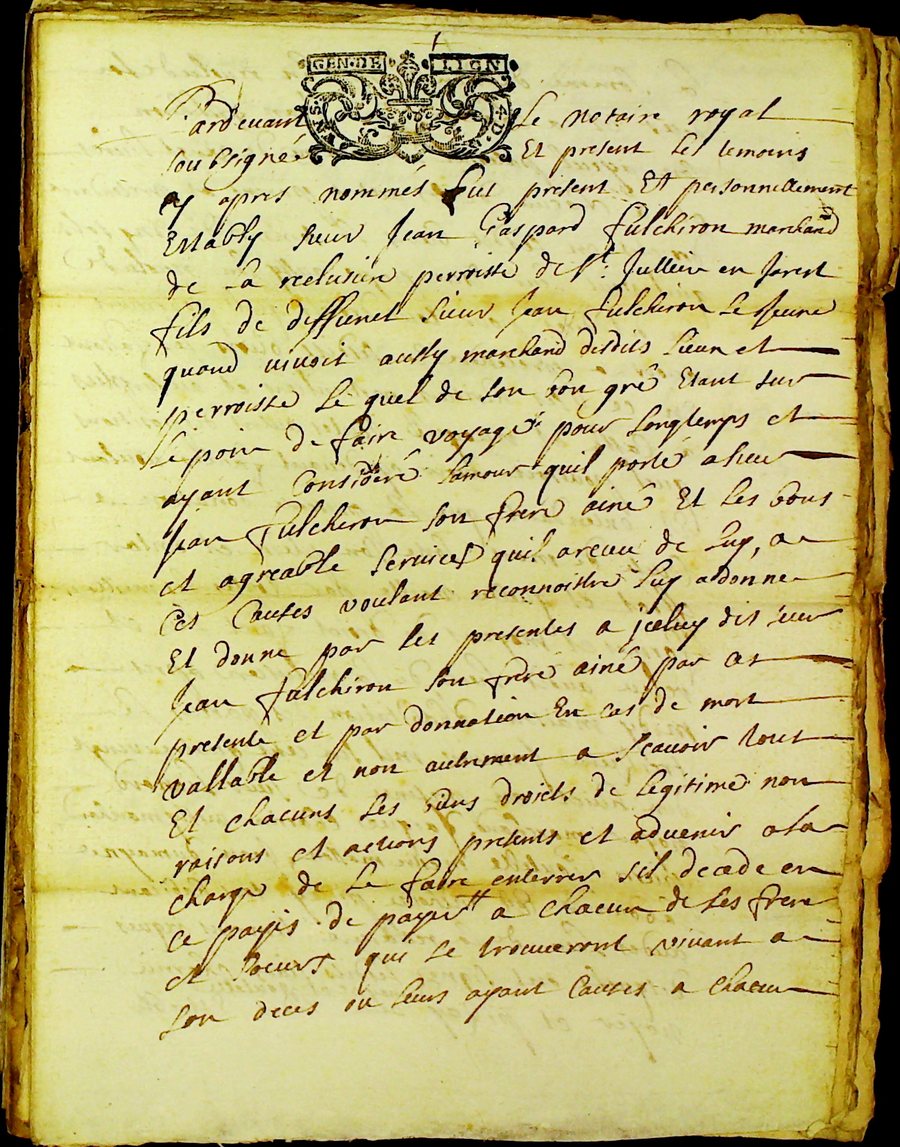 GEN·DE LION
Pardevant Le notaire royal
soubsigné Et present les temoins
cy apres nommés fut present Et personnellement
Estably sieur Jean Gaspard fulchiron marchand
de la reclusiere perroisse de St. Jullien en Jarest
fils de deffunct sieur Jean fulchiron Le Jeune
quand vivoit aussy marchand desdits Lieu et
perroisse Le quel de son bon gré Etant sur
Le point de faire voyage pour Longtemps et
ayant consideré Lamour quil porte a sieur
Jean fulchiron son frere ainé Et Les bons
et agreable services quil a receu de Luy, a
ces causes voulant reconnoistre Luy a donne
Et donne par les presentes a jceluy dit sieur
Jean fulchiron son frere ainé par cet
presente et par donnation En cas de mort
vallable et non autrement a scavoir tout
Et chacuns ses biens droicts de Legitime nom
raisons et actions presents et advenir a la
charge de Le faire enterrer sil decede en
ce payis de payer a chacun de ses frere
et soeurs qui se trouveront vivant a
son deces ou leurs ayant causes a chacun